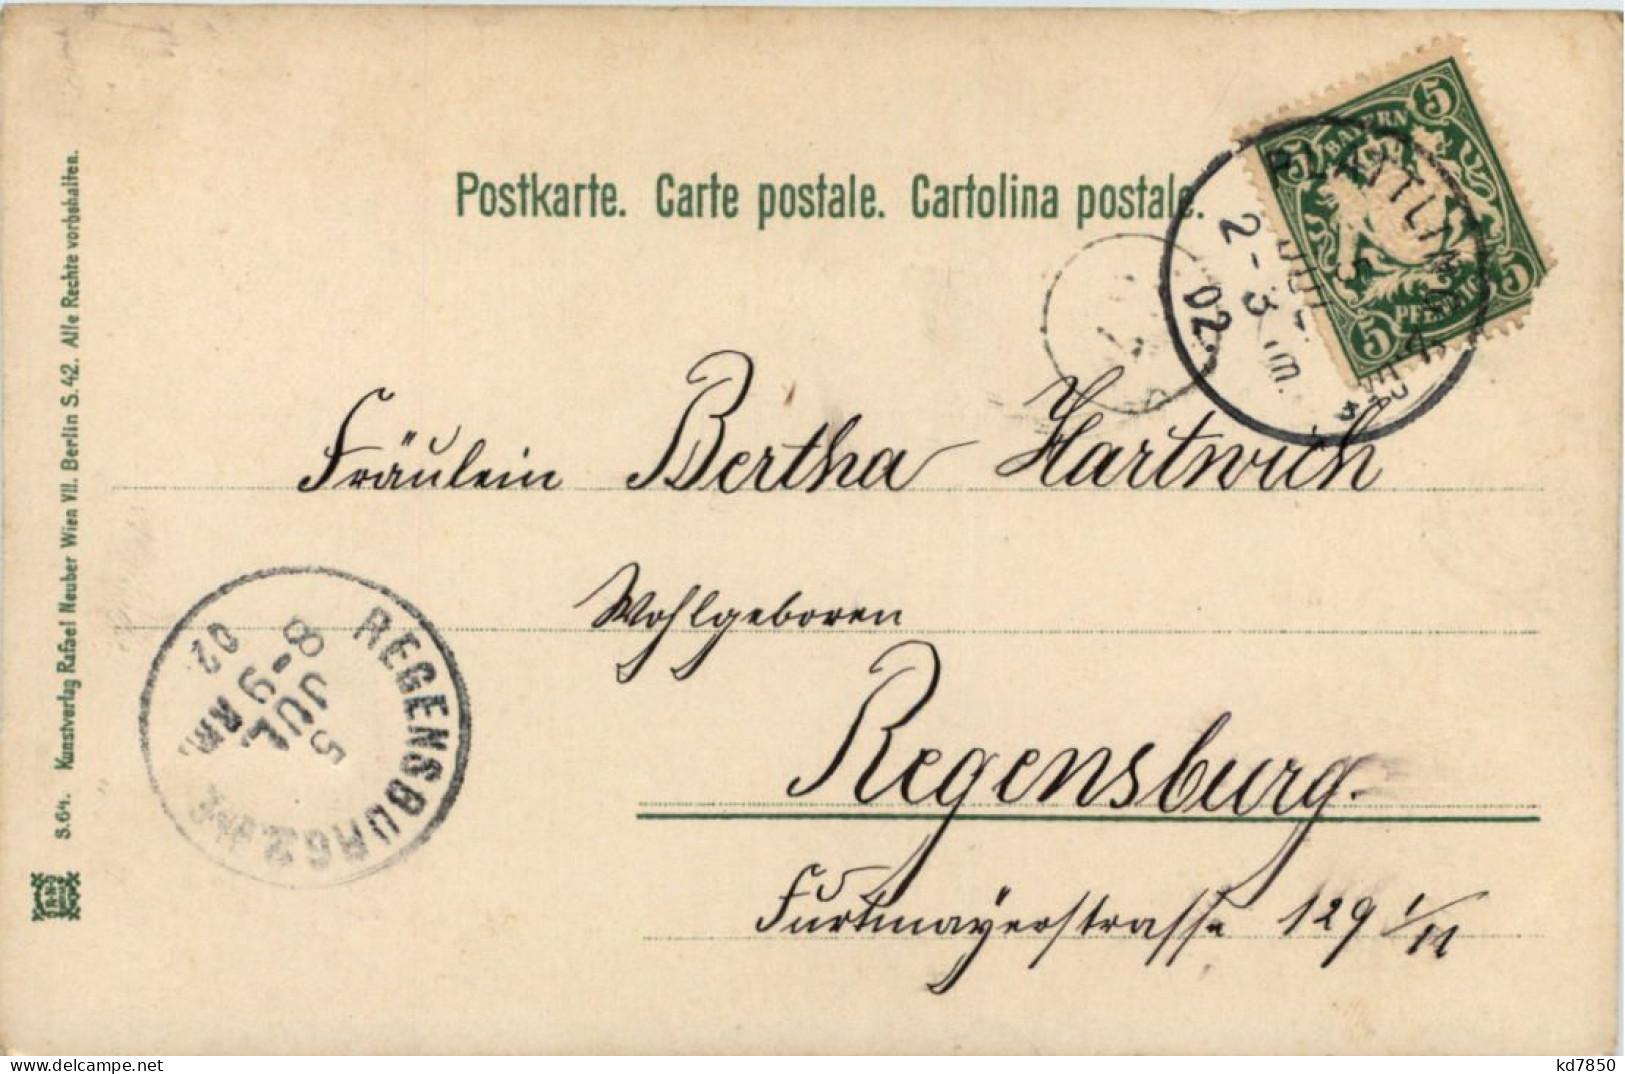 Postkarte. Carte postale. Cartolina postale.
BAYERN
5 5
5 5
PFENNIG
PLATTLING
5 JUL
2-3
02.
Fräulein Bertha Hartwich
Wohlgeboren
Regensburg.
Furtmayerstrasse 129 1/11
REGENSBURG 2.
5
JUL
8-9
02
S.64. Kunstverlag Rafael Neuber Wien VII. Berlin S.42. Alle Rechte vorbehalten.
kd7850